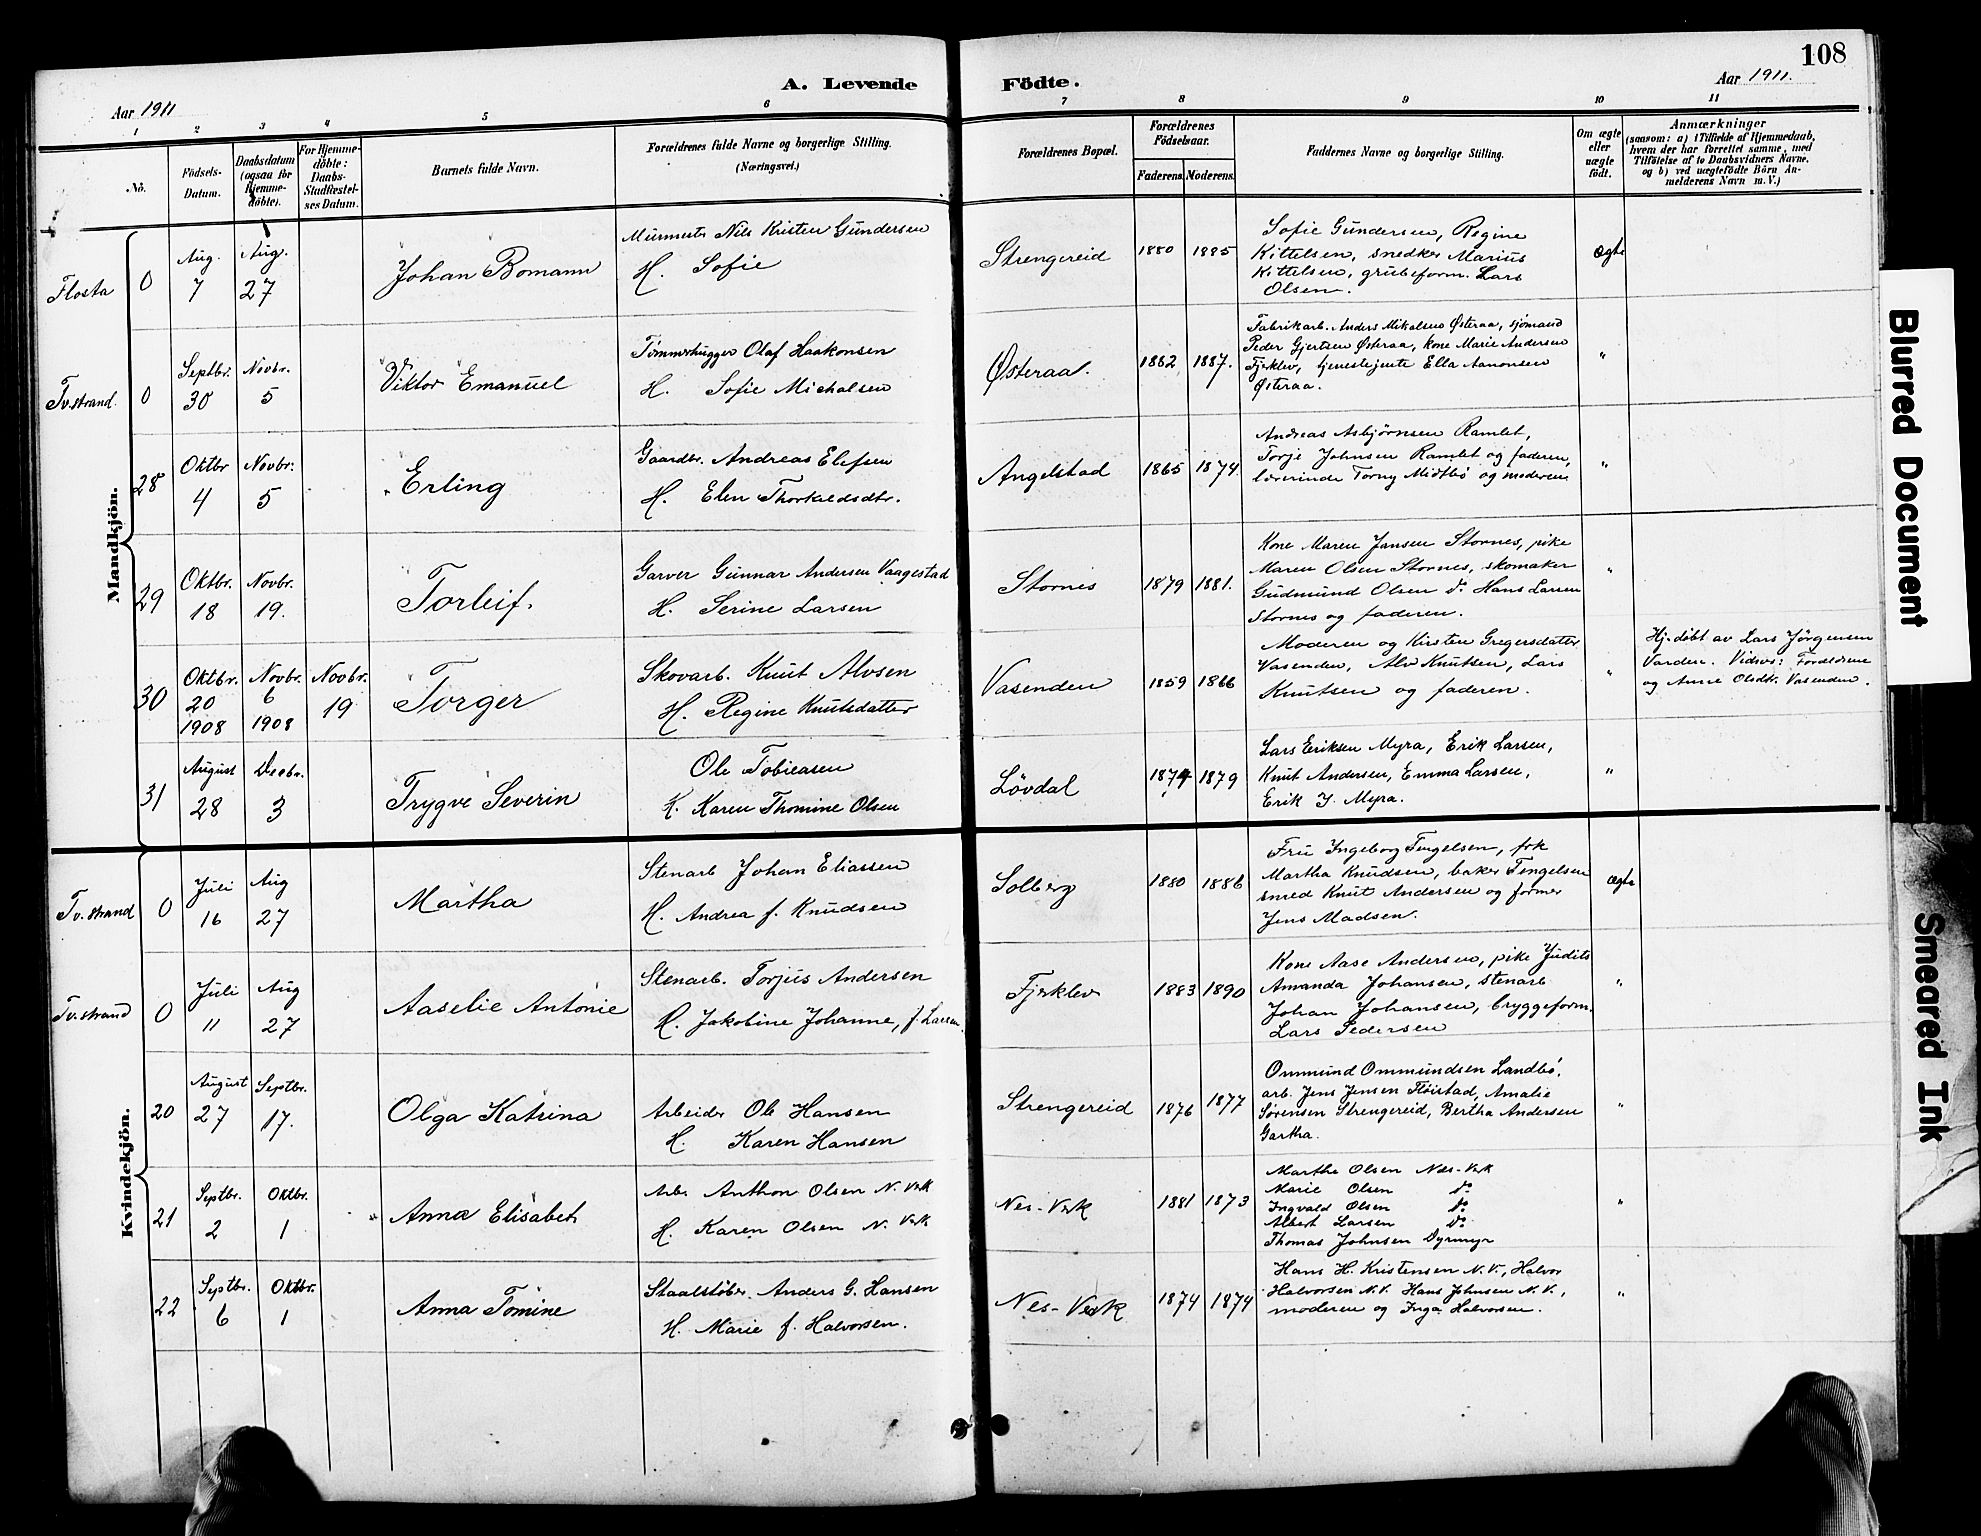 108
A. Levende Födte.
Aar 1911
Aar 1911.
1 2 3 4 5 6 7 8 9 10 11
No.
Födsels-Datum.
Daabsdatum (ogsaa for Hjemme-döbte).
For Hjemme-döbte: Daabs-Stadfæstel-ses Datum.
Barnets fulde Navn.
Forældrenes fulde Navne og borgerlige Stilling.
(Næringsvei.)
Forældrenes Bopæl.
Forældrenes Födselsaar.
Faderens. Moderens.
Faddernes Navne og borgerlige Stilling.
Om ægte eller uægte födt.
Anmærkninger
(saasom: a) i Tilfælde af Hjemmedaab,
hvem der har forrettet samme, med
Tilföielse af to Daabsvidners Navne.
og b) ved uægtefödte Börn An-
melderens Navn m. V.)
Mandkjön.
Flosta 0 Aug. 7 Aug. 27
Johan Bomann
Murmester Nils Kristen Gundersen
H. Sofie
Strengereid 1880 1885
Sofie Gundersen, Regine
Kittelsen, snedker Marius
Kittelsen, grubeform. Lars
Olsen.
Ægte
Tv.strand. 0 Septbr. 30 Novbr. 5
Viktor Emanuel
Tømmerhugger Olaf Haakonsen
H. Sofie Michalsen
Østeraa. 1882 1887.
Fabrikarb. Anders Mikalsens Østeraa, sjømand
Peder Gjertsen Østeraa, kone Marie Andersen
Fjærklev, tjenestejente Ella Aanonsen
Østeraa.
"
28 Oktbr 4 Novbr: 5
Erling
Gaardbr. Andreas Elefsen
H. Elen Thorkildsdtr.
Angelstad 1865 1874.
Andreas Asbjørnsen Ramlet,
Torje Johnsen Ramlet og faderen,
lærerinde Torny Midtbø og moderen
"
29 Oktbr. 18 Novbr. 19.
Torleif.
Garver Gunnar Andersen Vaagestad
H. Serine Larsen
Stornes 1879 1881.
Kone Maren Jansen Stornes, pike
Maren Olsen Stornes, skomaker
Gudmund Olsen do Hans Larsen
Stornes og faderen.
"
30 Oktbr. 20 1908 Novbr. 6 1908 Novbr. 19
Torger
Skovarb. Knut Alvsen
H. Regine Knutsdatter
Vasenden 1859 1866
Moderen og Kirsten Gregersdatter
Vasenden, Alv Knutsen, Lars
Knutsen og faderen.
"
Hj.døbt av Lars Jørgensen
Varden. Vidner: Forældrene
og Anne Olsdtr. Vasenden.
31 August 28 Decbr. 3
Trygve Severin
Ole Tobiasen
K. Karen Thomine Olsen
Løvdal 1874 1879
Lars Eriksen Myra, Erik Larsen,
Knut Andersen, Emma Larsen,
Erik J. Myra.
"
Kvindekjön.
Tv.strand 0 Juli 16 Aug 27
Martha
Stenarb Johan Eliassen
H. Andrea f. Knudsen
Solberg 1880 1886
Fru Ingeborg Tengelsen, frk
Martha Knudsen, baker Tengelsen
smed Knut Andersen og former
Jens Madsen.
Ægte
Tv.strand 0 Juli 11 Aug 27
Aaselie Antonie
Stenarb. Torjus Andersen
K. Jakobine Johanne, f. Larsen.
Fjærklev 1883 1890
Kone Aase Andersen, pike Judits
Amanda Johansen, stenarb
Johan Johansen, bryggeform.
Lars Pedersen
"
20 August 27 Septbr. 17.
Olga Katrina
Arbeider Ole Hansen
H. Karen Hansen
Strengereid 1876 1877
Ommund Ommundsen Landbø,
arb. Jens Jensen Fløistad, Amalie
Sørensen Strengereid, Bertha Andersen
Gartha.
"
21 Septbr. 2 Oktbr. 1
Anna Elisabet
Arbr Anthon Olsen N. Verk
H. Karen Olsen N. Verk
Nes-Verk 1881 1873
Marthe Olsen Nes-Verk
Marie Olsen do
Ingvald Olsen do
Albert Larsen do
Thomas Johnsen Dyrmyr
"
22 Septbr. 6 Oktbr. 1
Anna Tomine
Staalstøber Anders G. Hansen
H. Marie f. Halvorsen.
Nes-Verk 1874 1874
Hans H. Kristensen N.V., Halvor
Halvorsen N.V. Hans Johnsen N.V.,
moderen og Inga Halvorsen.
"
Blurred Document
Smeared Ink